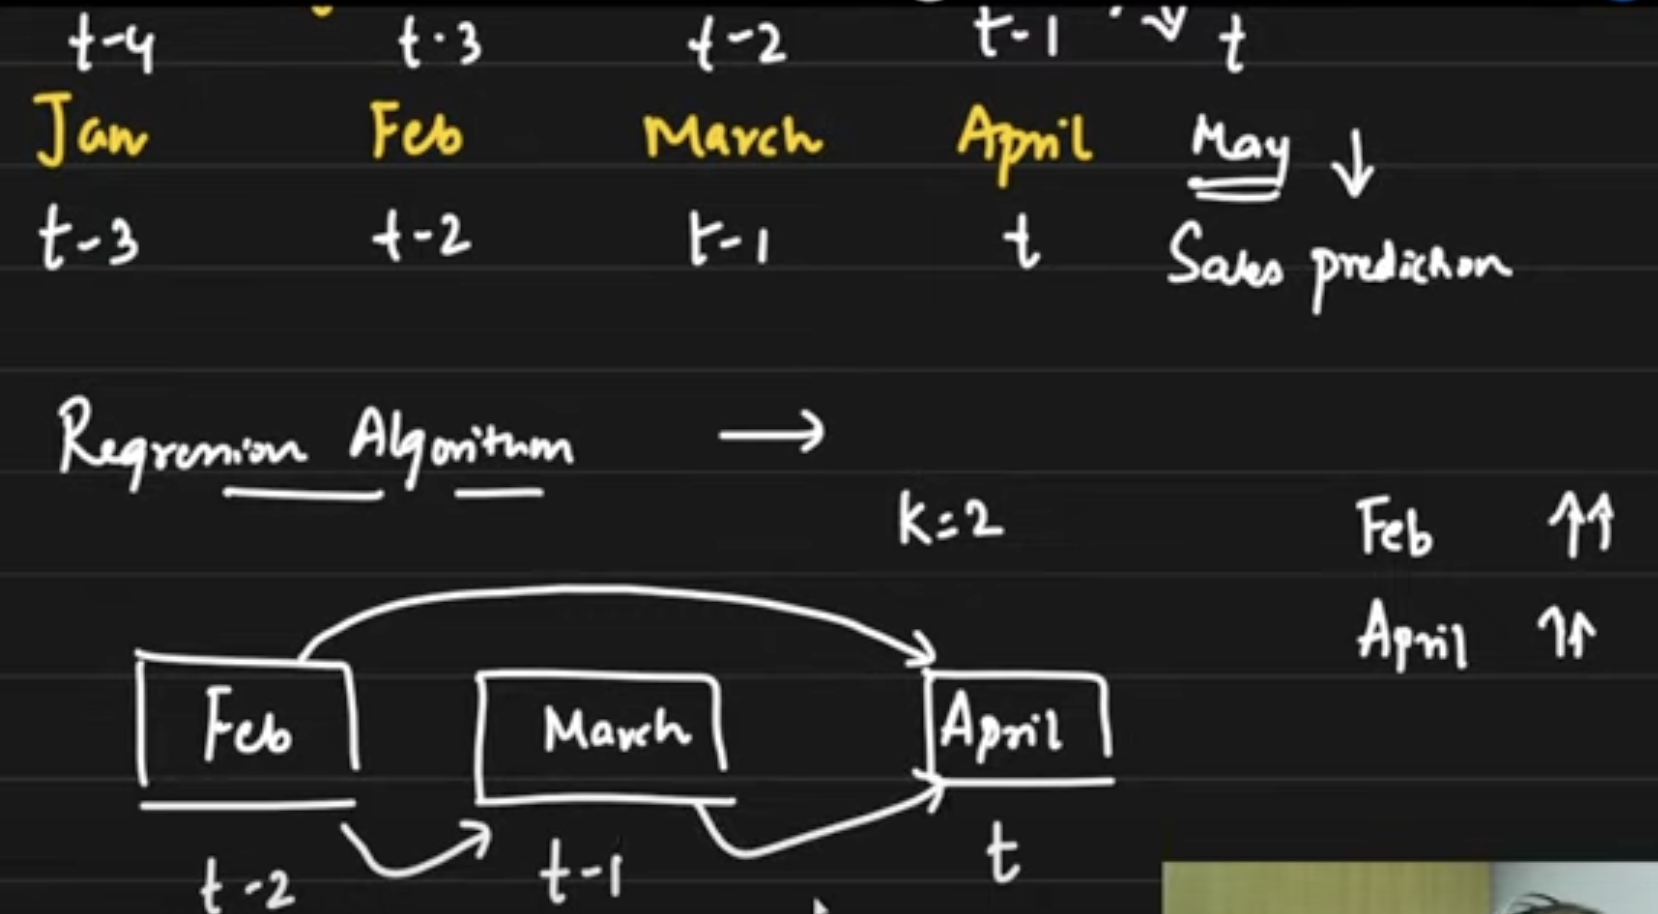 t-4 t-3 t-2 t-1 t
Jan Feb March April May ↓
t-3 t-2 t-1 t Sales prediction
Regression Algoritum →
K=2
Feb ↑↑
April ↑↑
Feb March April
t-2 t-1 t